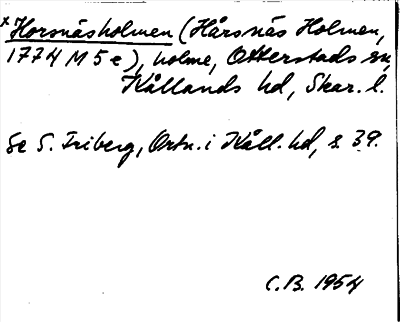 * Horsnäsholmen (Hårsnäs Holmen,
1774 M 5 e), holme, Otterstads sn,
Kållands hd, Skar. l.
Se S. Friberg, Ortn. i Kåll. hd, s. 39.
C.B. 1954